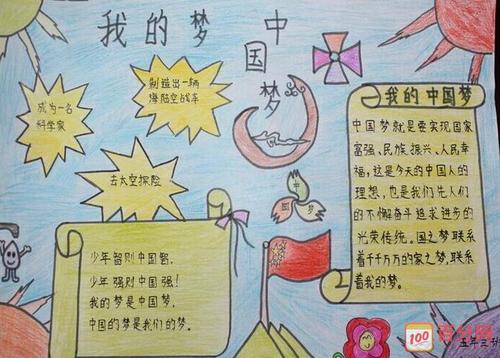 我的梦 中国梦
成为一名
科学家
制造出一辆
海陆空战车
去太空探险
中
国
梦
少年智则中国智,
少年强则中国强!
我的梦是中国梦,
中国的梦是我们的梦。
我的中国梦
中国梦就是要实现国家
富强、民族振兴、人民幸
福,这是今天的中国人的
理想,也是我们先人们
的不懈奋斗追求进步的
光荣传统。国之梦联系
着千千万万的家之梦,联系
着我的梦。
五年三班
100